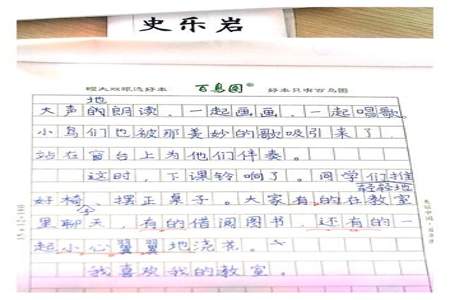 史乐岩
睁大双眼选好本 百鸟图 好本只有百鸟图
地
大声的朗读,一起画画,一起唱歌。
小鸟们也被那美妙的歌吸引来了,
站在窗台上为他们伴奏。
这时,下课铃响了。同学们推
轻轻地
好椅子、摆正桌子。大家有的在教室
里聊天,有的借阅图书,还有的一
起小心翼翼地浇花。
我喜欢我的教室。